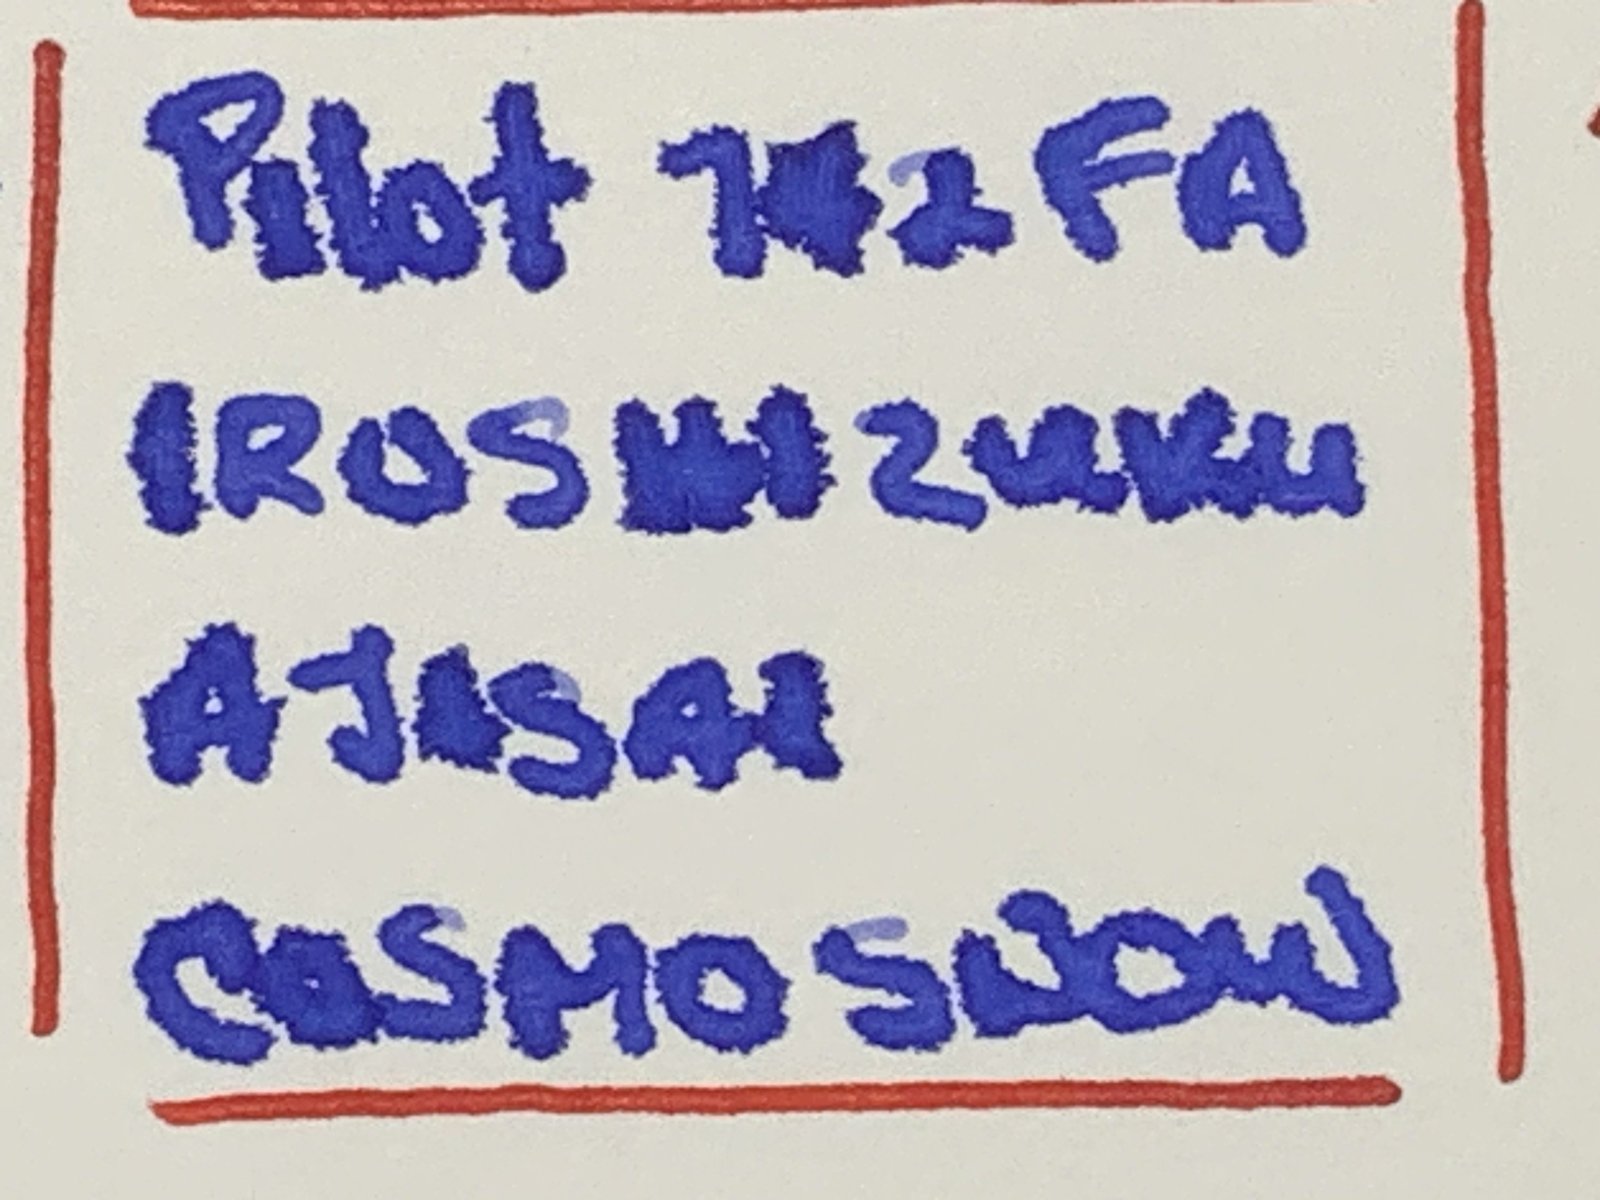 Pilot 742 FA
IROSHIZUKU
AJISAI
COSMO SNOW